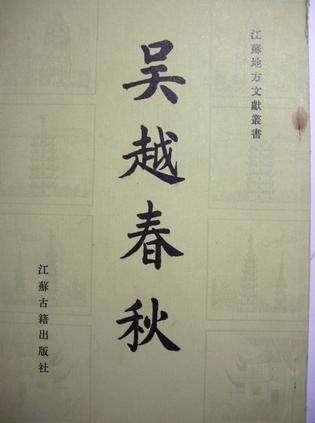 江蘇地方文獻叢書
吴越春秋
江蘇古籍出版社